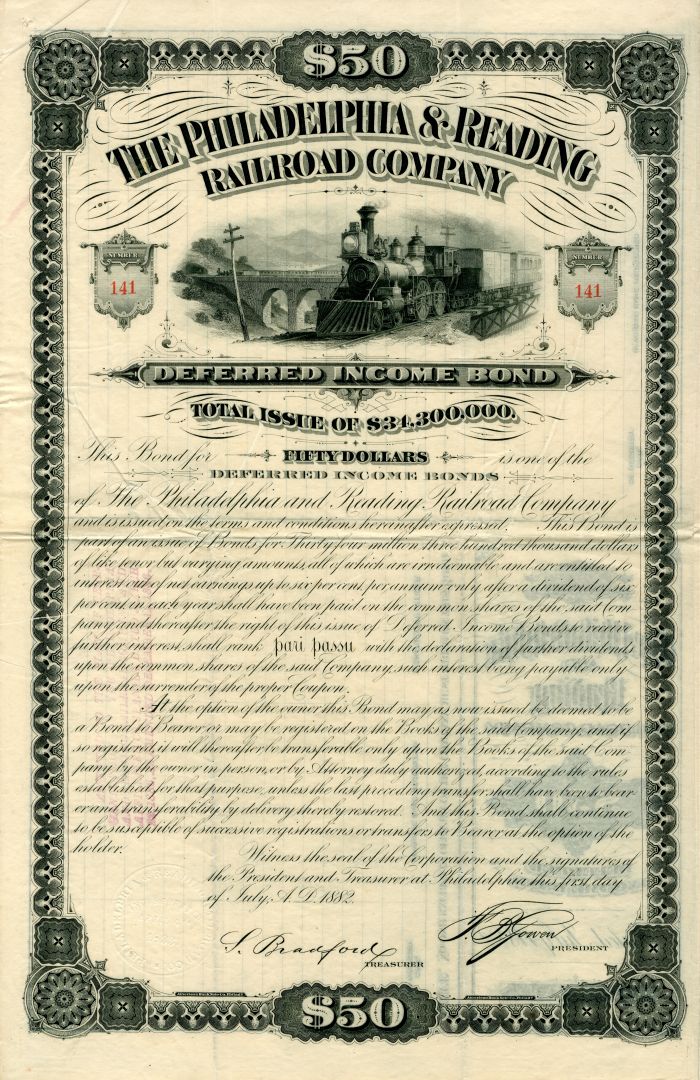 $50
THE PHILADELPHIA & READING
RAILROAD COMPANY
NUMBER
141
NUMBER
141
DEFERRED INCOME BOND
TOTAL ISSUE OF $34,300,000.
This Bond for FIFTY DOLLARS is one of the
DEFERRED INCOME BONDS
of The Philadelphia and Reading Railroad Company
and is issued on the terms and conditions hereinafter expressed. This Bond is
part of an issue of Bonds for Thirty four million three hundred thousand dollars
of like tenor but varying amounts, all of which are irredeemable and are entitled to
interest out of net earnings up to six per cent. per annum only after a dividend of six
per cent. in each year shall have been paid on the common shares of the said Com
pany and thereafter the right of this issue of Deferred Income Bonds to receive
further interest, shall rank pari passu with the declaration of further dividends
upon the common shares of the said Company, such interest being payable only
upon the surrender of the proper Coupon.
At the option of the owner this Bond may as now issued be deemed to be
a Bond to Bearer or may be registered on the Books of the said Company, and if
so registered, it will thereafter be transferable only upon the Books of the said Com
pany by the owner in person, or by Attorney duly authorized, according to the rules
established for that purpose, unless the last preceding transfer shall have been to bear
er and transferability by delivery thereby restored. And this Bond shall continue
to be susceptible of successive registrations or transfers to Bearer at the option of the
holder.
Witness the seal of the Corporation and the signatures of
the President and Treasurer at Philadelphia this first day
of July, A. D. 1882.
S. Bradford
TREASURER
F. B. Gowen
PRESIDENT
American Bank Note Co. Philad.
American Bank Note Co. Philad.
$50